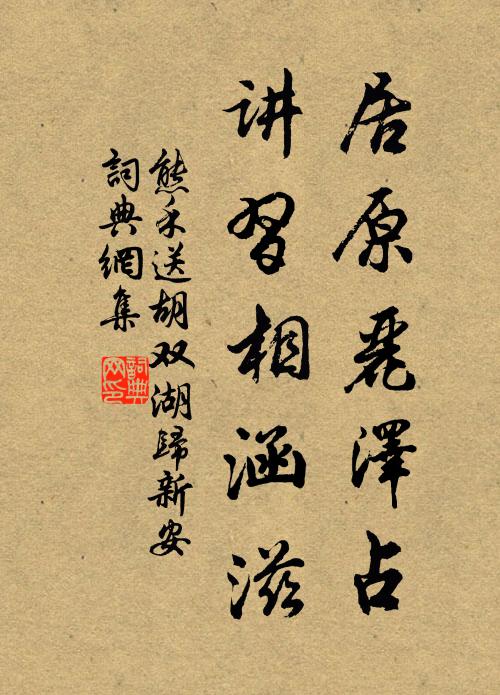 居原麗澤占
讲習相涵滋
熊禾送胡双湖歸新安
詞典網集
詞典网印